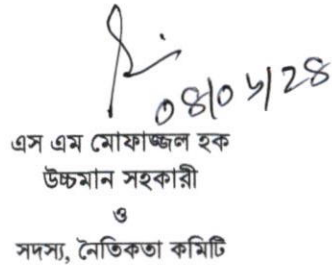 ০৪/০৬/২৪
এস এম মোফাজ্জল হক
উচ্চমান সহকারী
ও
সদস্য, নৈতিকতা কমিটি